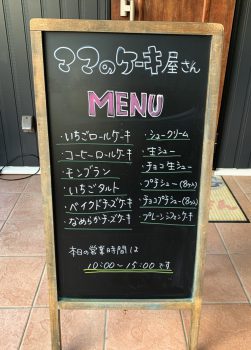 ママのケーキ屋さん
MENU
・いちごロールケーキ
・コーヒーロールケーキ
・モンブラン
・いちごタルト
・ベイクドチーズケーキ
・なめらかチーズケーキ
・シュークリーム
・生シュー
・チョコ生シュー
・プチシュー(8コ入)
・チョコプチシュー(8コ入)
・プレーンシフォンケーキ
本日の営業時間は
10:00〜15:00です